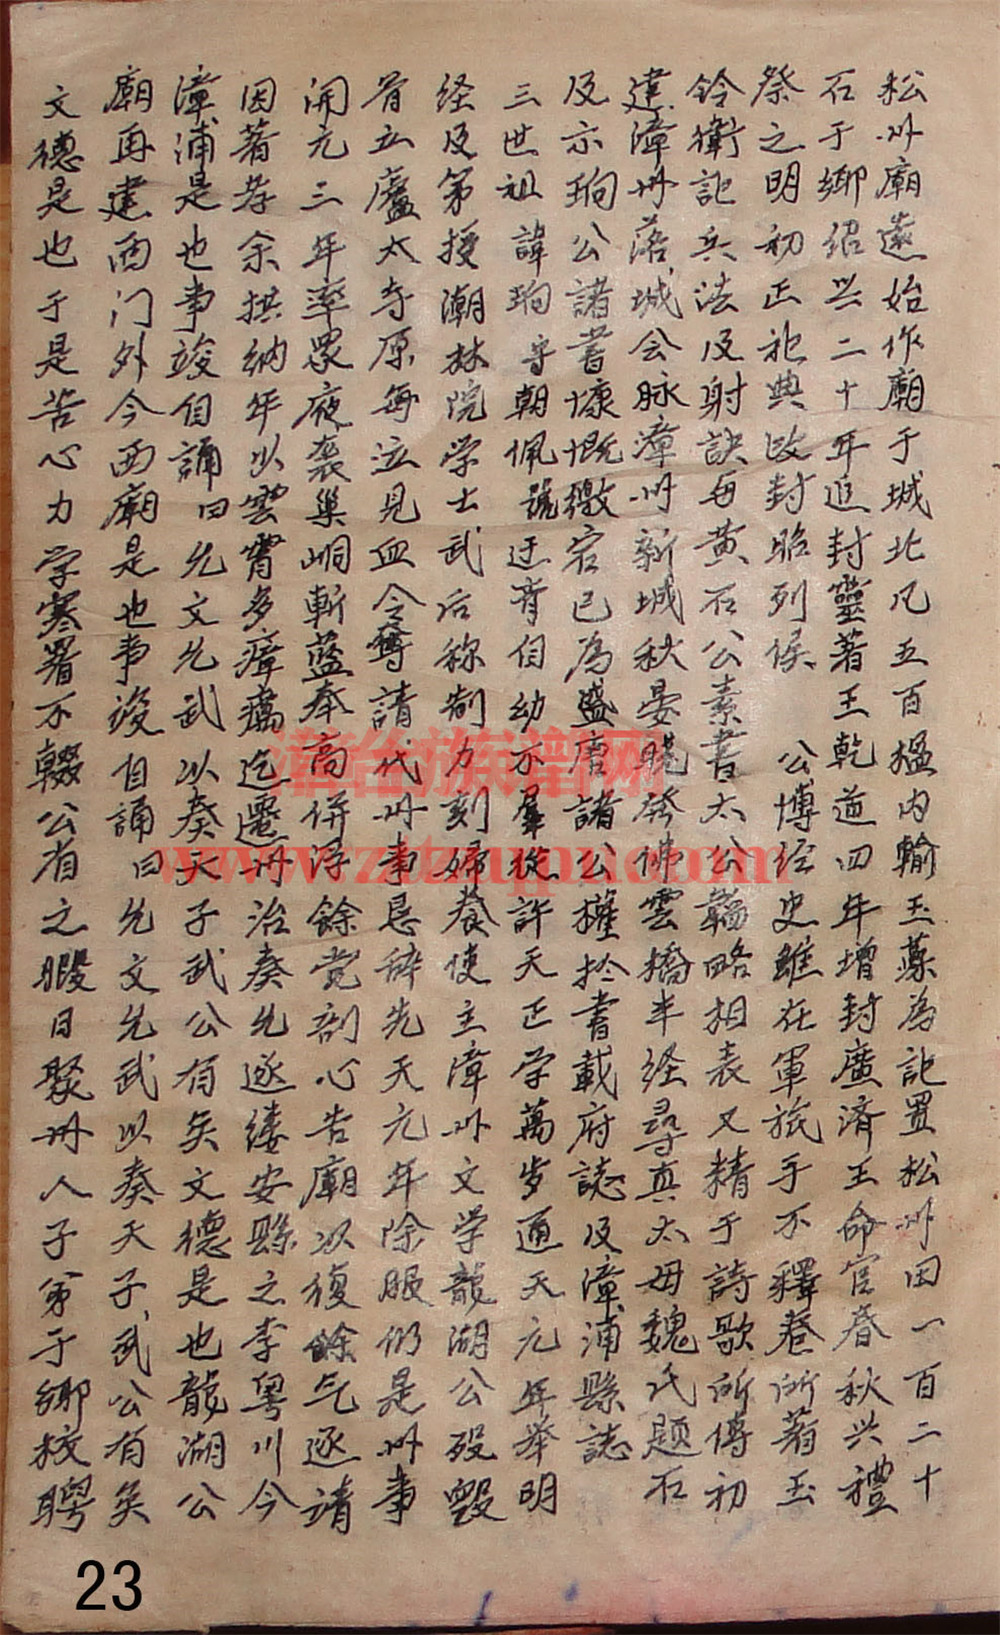 松州廟遠始作廟于城北凡五百楹内輸玉藻為記置松州田一百二十
石于鄉紹兴二十年追封靈著王乾道四年增封廣済王命官春秋兴禮
祭之明初正祀典改封昭列侯 公博经史雖在軍旅手不釋卷所著玉
鈐衛記兵法及射訣每黄石公素書太公韜略相表又精于詩歌所傳初
建漳州落城会脉漳州新城秋晏晓發佛雲橋半经尋真太母魏氏题石
及示珦公諸書慷慨激宕已為盛唐諸公權於書載府誌及漳浦縣誌
三世祖諱珦字朝佩號迂脊自幼不羣從許天正学萬歩通天元年举明
经及第授潮林院学士武后称制力刻婦養使主漳州文学龍湖公殁毁
首立廬太寺原每泣見血令奪請代州事恳辞先天元年除服仍是州事
開元三年率眾廠袭巢峒斬蓝奉高併俘餘党剖心告廟以復餘气逐請
因著孝余拱纳年以雲霄多瘴癘迄遷州治奏允逐缕安縣之李粤川今
漳浦是也事竣自誦曰允文允武以奏天子武公有矣文德是也龍湖公
廟再建西门外今西廟是也事竣自誦曰允文允武以奏天子武公有矣
文德是也于是苦心力学寒暑不輟公有之暇日聚州人子第于鄉校聘
漳台族譜网
www.ztzupu.com
23